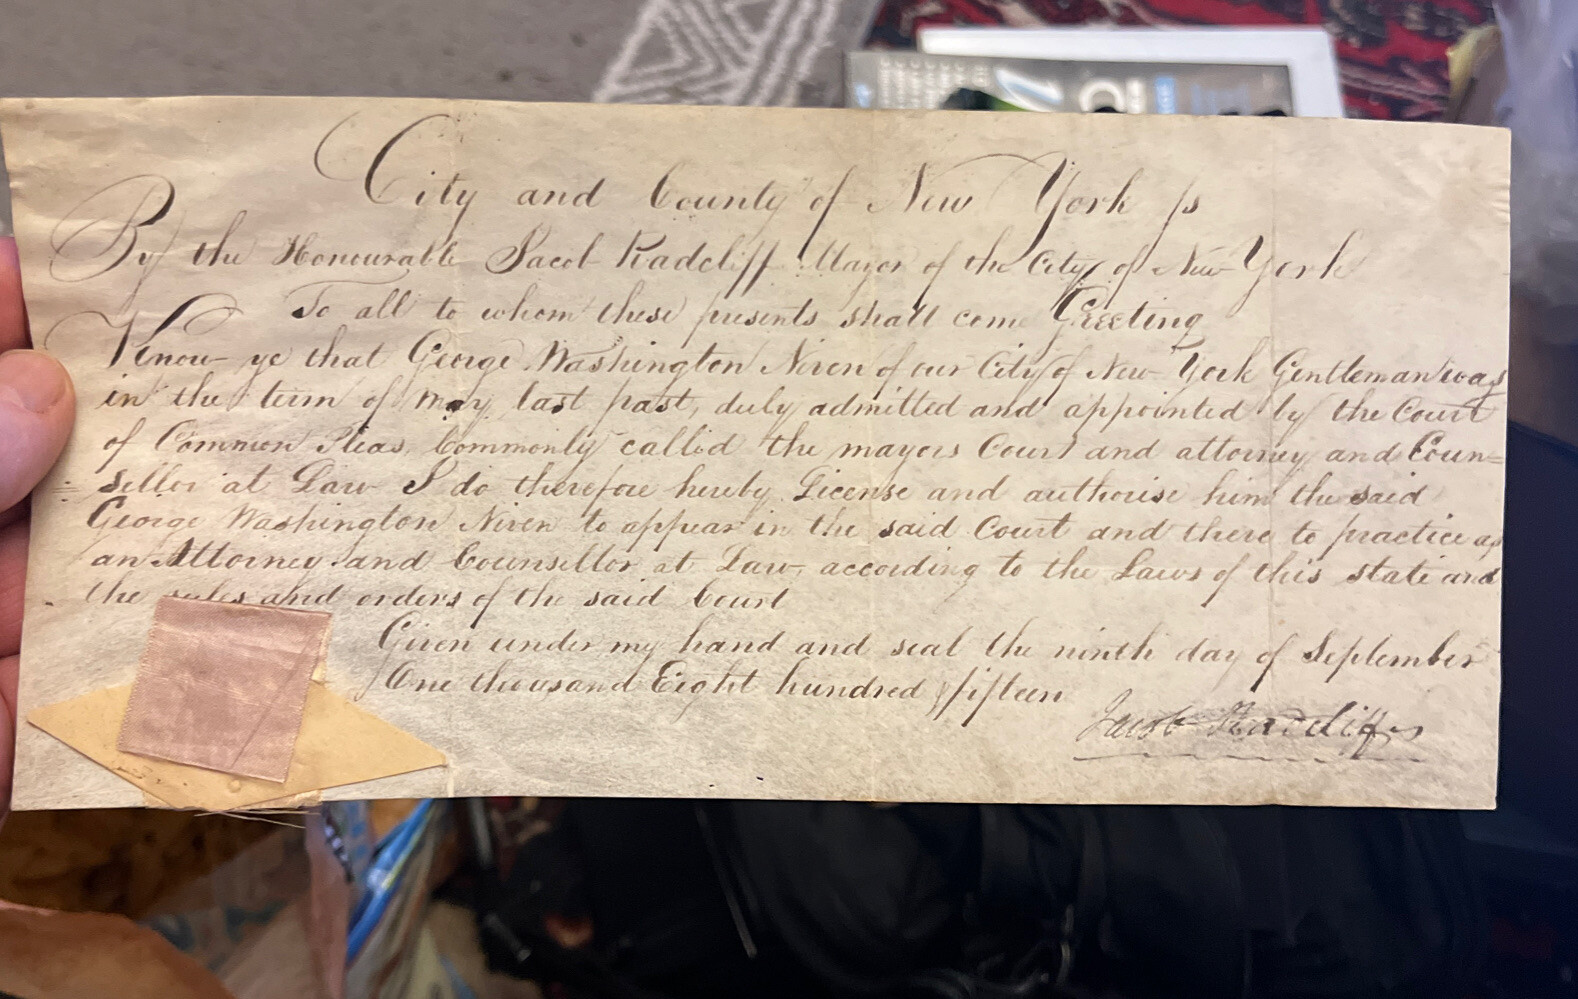 City and County of New York ss
By the Honourable Jacob Radcliff Mayor of the City of New York
To all to whom these presents shall come Greeting
Know ye that George Washington Niven of our City of New York Gentleman was
in the term of may last past, duly admitted and appointed by the Court
of Common Pleas, Commonly called the mayors Court and attorney and Coun=
sellor at Law I do therefore hereby License and authorise him the said
George Washington Niven to appear in the said Court and there to practice as
an Attorney and Counsellor at Law, according to the Laws of this state and
the rules and orders of the said Court
Given under my hand and seal the ninth day of September
One thousand Eight hundred fifteen
Jacob Radcliff